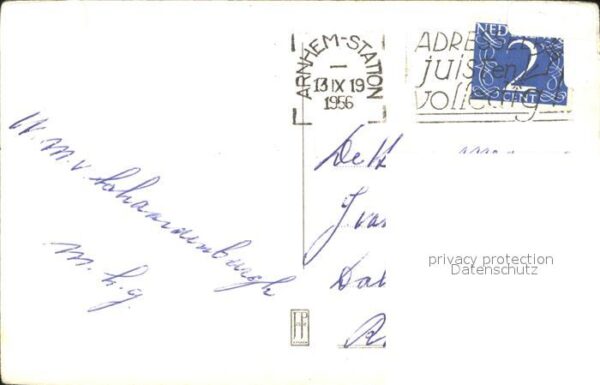 ARNHEM-STATION
13 IX 19
1956
ADRESSEER
juist en
volledig
NED
2
CENT
De H
J. va
privacy protection
Datenschutz
W. M. v. Schaardenburgh
m. h. g.